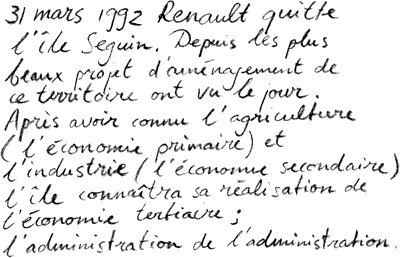 31 mars 1992 Renault quitte
l'île Seguin. Depuis les plus
beaux projet d'aménagement de
ce territoire ont vu le jour.
Après avoir connu l'agriculture
(l'économie primaire) et
l'industrie (l'économie secondaire)
l'île connaîtra sa réalisation de
l'économie tertiaire ;
l'administration de l'administration.